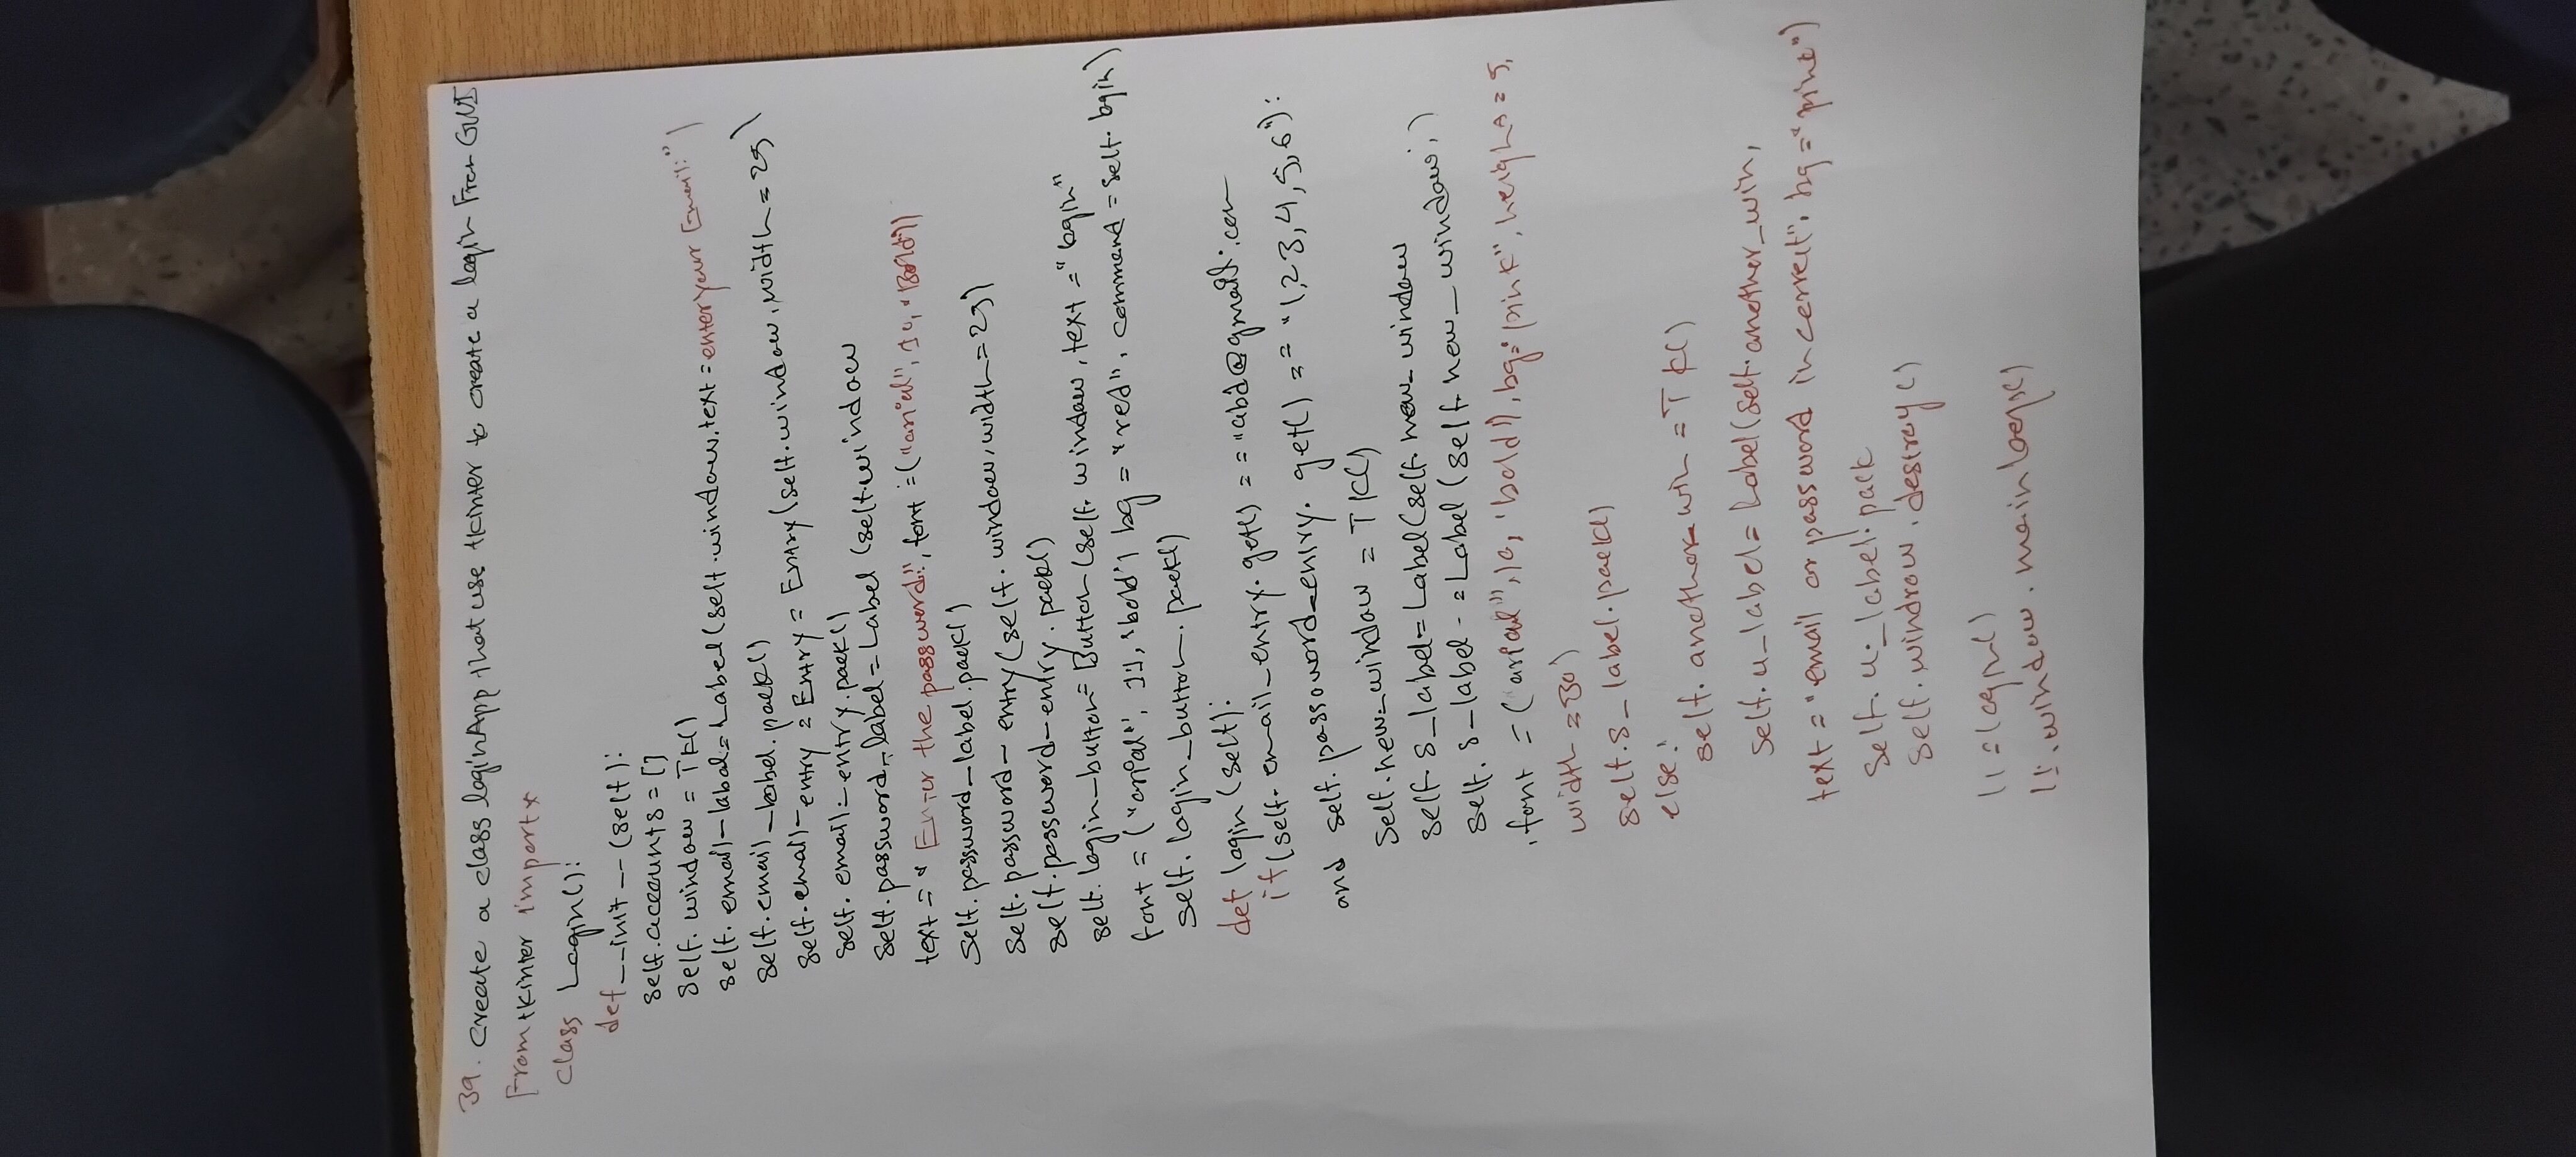 39. Create a class loginApp that use tkinter to create a login From GUI
From tkinter import *
class Login():
def __init__(self):
self.accounts = []
self. window = Tk()
self. email_label = Label(self.window, text = enter your Email:")
self.email_label.pack()
self.email_entry = Entry = Entry(self.window, width = 25)
self. email_entry.pack()
self.password_label = Label (self.window
text = " Enter the password:", font = ("arial", 10, "Bold"))
self.password_label.pack()
self. password_entry(self. window, width = 25)
self.password_entry. pack()
self. login_button = Button (self. window, text = "login"
font = ("arial", 11, 'bold') bg = "red", command = self. login)
self. login_button. pack()
def login (self):
if (self. email_entry. get() == "abd@gmail.com
and self. passoword_entry. get() == "1,2 3, 4, 5, 6"):
self.new_window = Tk()
self. s_label = Label(self. new_ window
self. s_label - = Label (self. new_window, )
, font = ("arial", 10, 'bold'), bg = "pink", height = 5,
width = 30)
self.s_ label.pack()
else:
self. another win = Tk()
self.u_label = Label(self.another_win,
text = "email or password incorrect", bg = "pink")
self. u_label.pack
self.windrow.destroy()
l1 = login()
l1.window.mainloop()